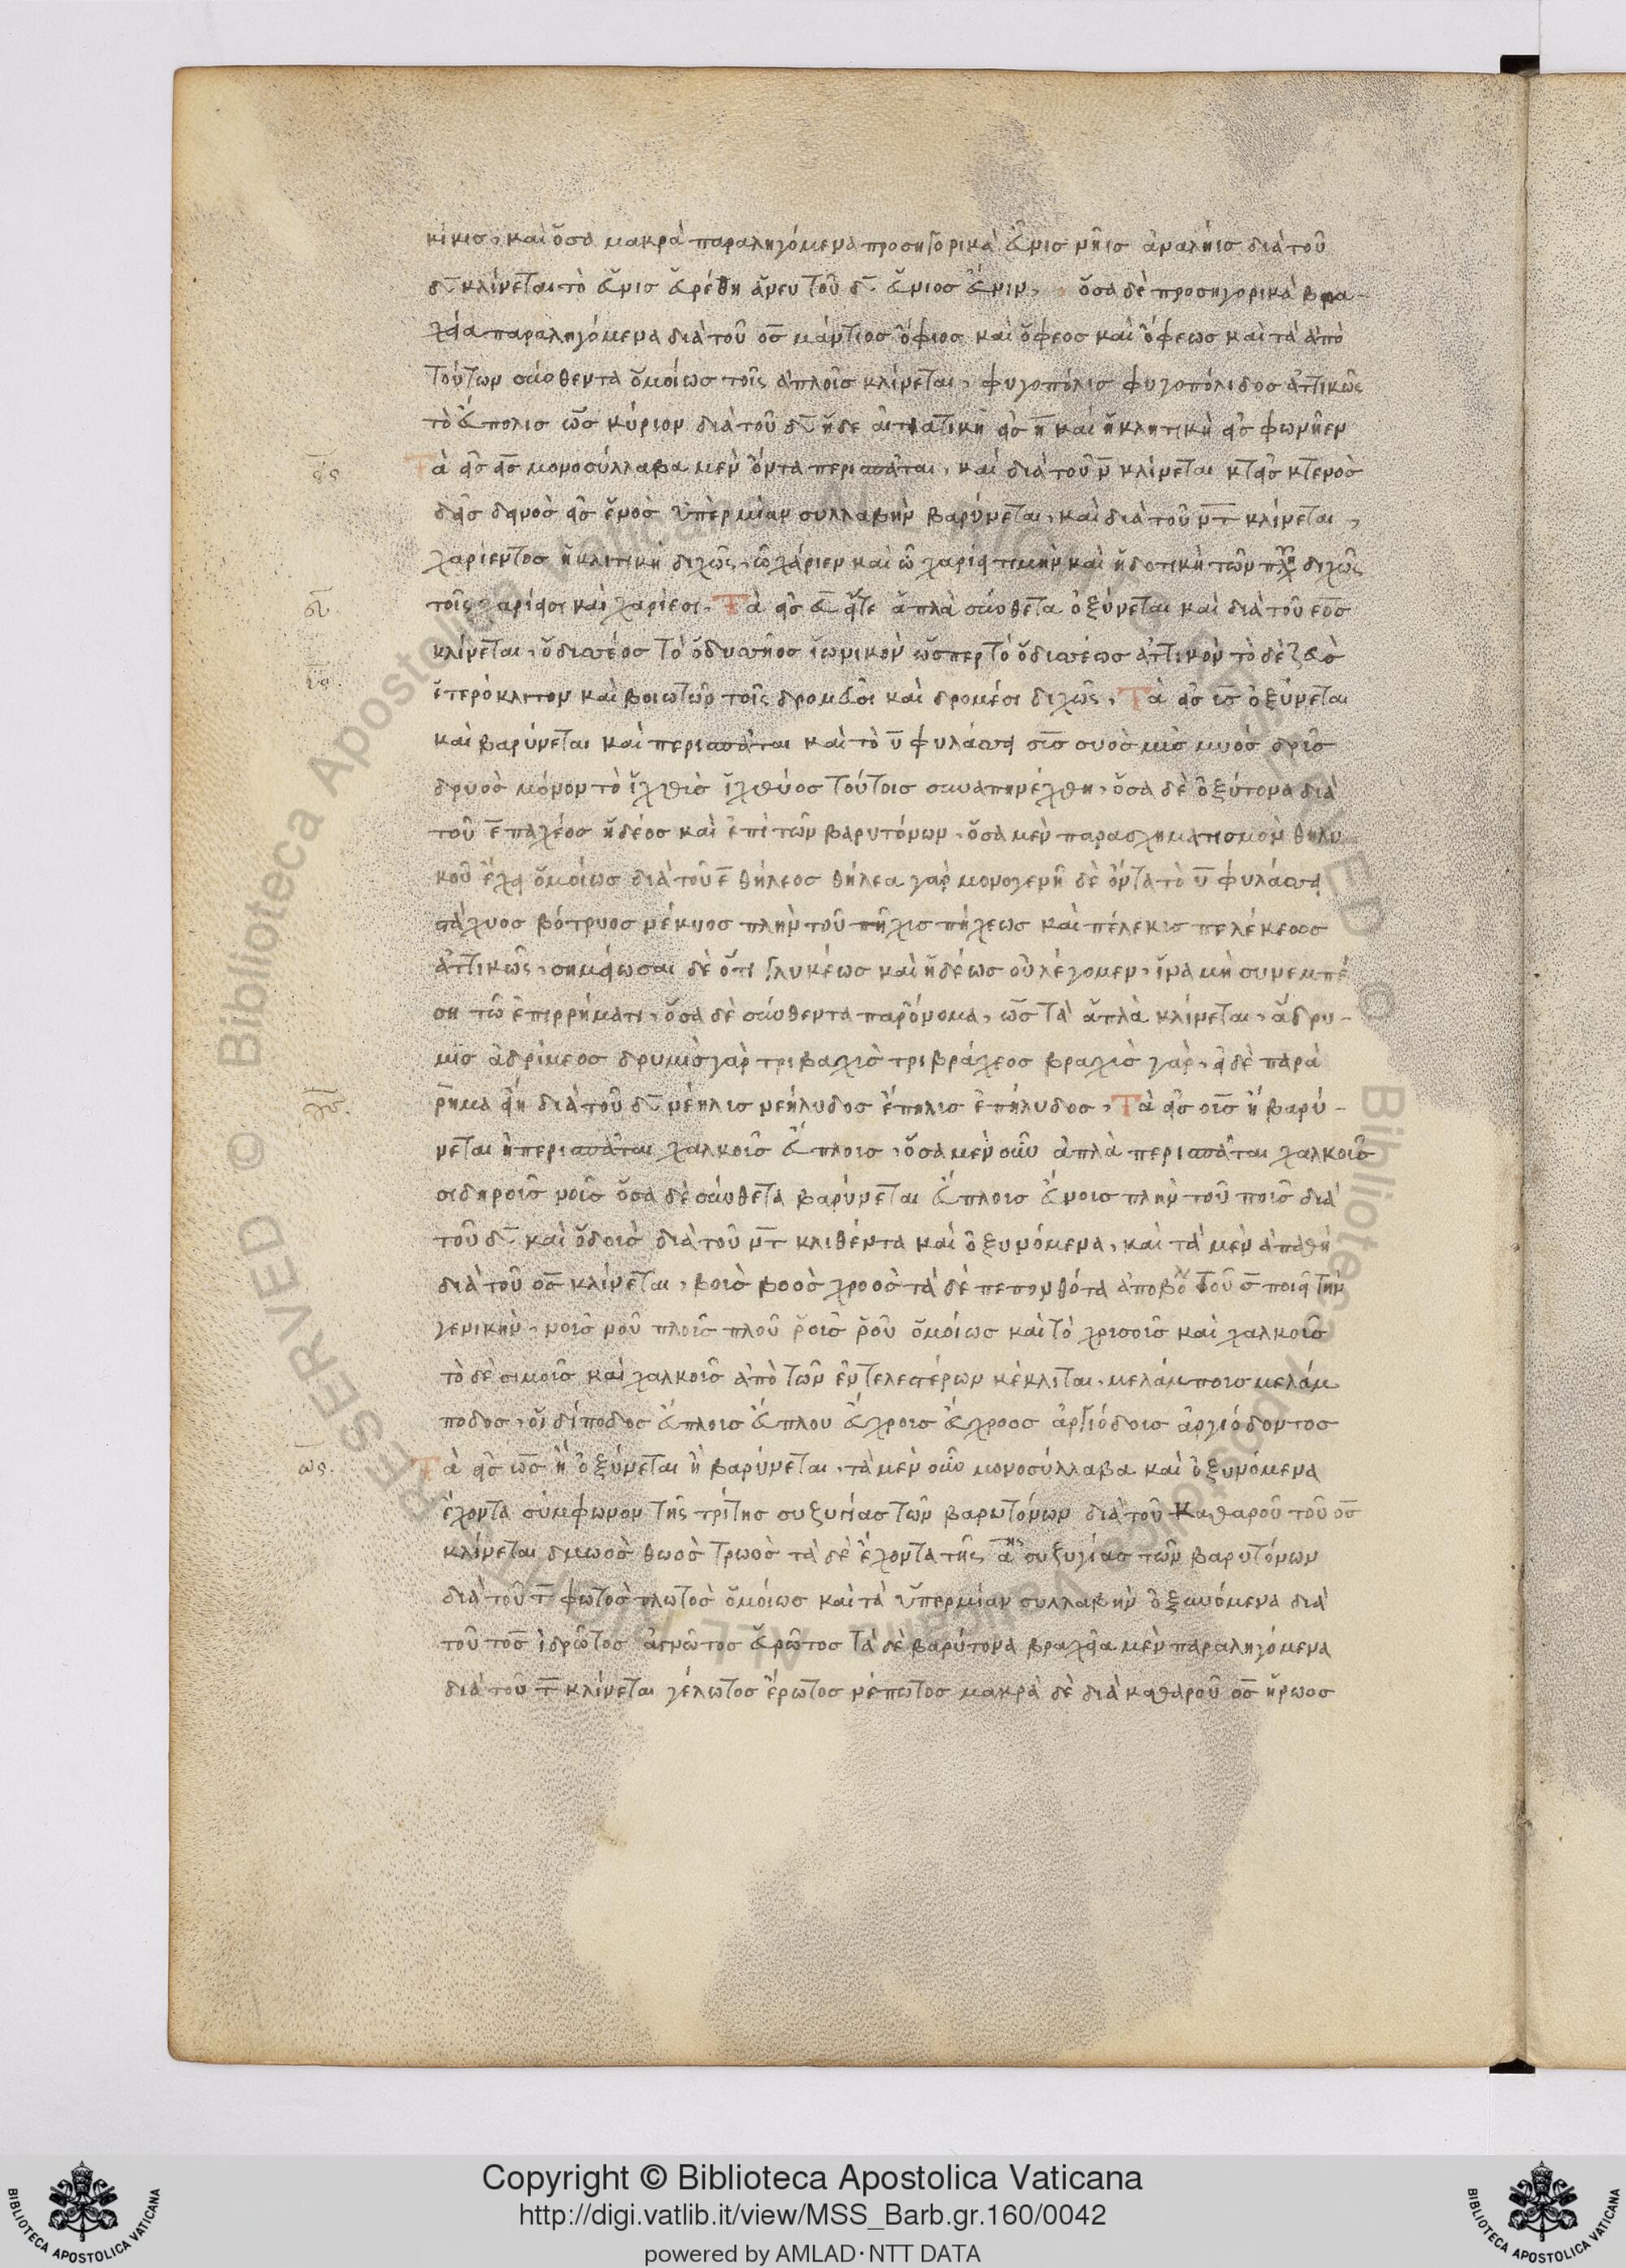 κίκισ, καὶ ὅσα μακρὰ παραληγόμενα προσηγορικὰ εὖνισ μῆνισ ἀμαλήισ διὰ τοῦ
δ κλίνεται τὸ εὖνισ εὑρέθη ἄνευ τοῦ δ εὔνιοσ εὖνιν, ὅσα δὲ προσηγορικὰ βρα-
χεία παραληγόμενα διὰ τοῦ οσ μάντιοσ ὄφιοσ καὶ ὄφεοσ καὶ ὄφεωσ καὶ τὰ ἀπὸ
τούτων σύνθεντα ὁμοίωσ τοῖς ἁπλοῖσ κλίνεται, φυγοπόλισ φυγοπόλιδοσ ἀττικῶς
τὸ εὔπολισ ὡσ κύριον διὰ τοῦ δ ἡ δὲ αἰτιατικὴ εἰσ ν καὶ ἡ κλητικὴ εἰσ φωνῆεν
ϛϛ
Τὰ εἰσ εισ μονοσύλλαβα μὲν ὄντα περισπᾶται, καὶ διὰ τοῦ ν κλίνεται κτεὶσ κτενὸσ
δεὶσ δενὸσ εἷσ ἑνὸσ ὑπὲρ μίαν συλλαβὴν βαρύνεται, καὶ διὰ τοῦ ντ κλίνεται,
χαρίεντοσ ἡ κλιτικὴ διχῶς, ὦ χάριεν καὶ ὦ χαρίει καὶ ἡ δοτικὴ τῶν διχῶς
τοῖς χαρίεισι καὶ χαρίεσι. Τὰ εἰσ ευσ εἴτε ἁπλὰ σύνθετα ὀξύνεται καὶ διὰ τοῦ εοσ
κλίνεται, ὀδυσσέοσ τὸ ὀδυσσῆοσ ἰωνικὸν ὥσπερ τὸ ὀδυσσέωσ ἀττικὸν τὸ δὲ ζεὺσ
ἑτερόκλιτον καὶ βοιωτῶν τοῖς δρομεῦσι καὶ δρομέσι διχῶς, Τὰ εἰσ ισ ὀξύνεται
καὶ βαρύνεται καὶ περισπᾶται καὶ τὸ υ φυλάσσει σῦσ συὸσ μῦσ μυόσ δρῦσ
δρυὸσ μόνον τὸ ἰχθὺσ ἰχθύοσ τούτοισ συναπηνέχθη, ὅσα δὲ ὀξύτονα διὰ
τοῦ ε παχέοσ ἡδέοσ καὶ ἐπὶ τῶν βαρυτόνων, ὅσα μὲν παρασχηματισμὸν θηλυ
κοῦ ἔχει ὁμοίωσ διὰ τοῦ ε θήλεοσ θήλεα γὰρ μονογενῆ δὲ ὄντα τὸ υ φυλάσσει
στάχυοσ βότρυοσ νέκυοσ πλὴν τοῦ πῆχισ πήχεωσ καὶ πέλεκισ πελέκεωσ
ἀττικῶς, σημείωσαι δὲ ὅτι γλυκέωσ καὶ ἡδέωσ οὐ λέγομεν, ἵνα μὴ συνεμπέ
ση τῶ ἐπιρρήματι, ὅσα δὲ σύνθεντα παρώνομα, ὡσ τὰ ἁπλὰ κλίνεται, ἄδρυ-
μισ ἀδρίμεοσ δρυμὶσ γὰρ τριβαχισ τριβράχεοσ βραχὶσ γάρ, εἰ δὲ παρὰ
ῥῆμα εἴη διὰ τοῦ δ νέηλισ νεήλυδοσ ἔπηλισ ἐπήλυδοσ, Τὰ εἰσ οισ ἢ βαρύ-
νεται ἢ περισπᾶται χαλκοῖσ εὔπλοισ, ὅσα μὲν οὖν ἁπλὰ περισπᾶται χαλκοῖσ
σιδηροῖσ νοῖσ ὅσα δὲ σύνθετα βαρύνεται εὔπλοισ εὔνοισ πλὴν τοῦ ποῖσ διὰ
τοῦ δ καὶ ὀδοισ διὰ τοῦ ντ κλιθέντα καὶ ὀξυνόμενα, καὶ τὰ μὲν ἀπαθῆ
διὰ τοῦ οσ κλίνεται, βοισ βοοσ χροοσ τὰ δὲ πεπονθότα ἀποβο τοῦ σ ποιεῖ τὴν
γενικὴν, νοῖσ νοῦ πλοῖσ πλοῦ ῥοῖσ ῥοῦ ὁμοίωσ καὶ τὸ χρισοῖσ καὶ χαλκοῖσ
τὸ δὲ σιμοῖσ καὶ χαλκοῖσ ἀπὸ τῶν ἐντελεστέρων κέκλιται, μελάμποισ μελάμ
ποδοσ, οἱ δίποδοσ εὔπλοισ εὔπλου εὔχροισ εὔχροοσ ἀργιόδοισ ἀργιόδοντοσ
ως.
Τὰ εἰσ ωσ ἢ ὀξύνεται ἢ βαρύνεται, τὰ μὲν οὖν μονοσύλλαβα καὶ ὀξυνόμενα
ἔχοντα σύμφωνον τῆς τρίτησ συζυγίασ τῶν βαρυτόνων διὰ τοῦ καθαροῦ τοῦ οσ
κλίνεται δμωὸσ θωὸσ τρωὸσ τὰ δὲ ἔχοντα τῆς α συζυγίασ τῶν βαρυτόνων
διὰ τοῦ τ φωτὸσ πλωτὸσ ὁμοίωσ καὶ τὰ ὑπερμίαν συλλαβὴν ὀξυνόμενα διὰ
τοῦ τοσ ἱδρῶτοσ ἀγνῶτοσ εὐρῶτοσ τὰ δὲ βαρύτονα βραχεῖα μὲν παραληγόμενα
διὰ τοῦ τ κλίνεται γέλωτοσ ἔρωτοσ νέπωτοσ μακρὰ δὲ διὰ καθαροῦ οσ ἥρωοσ
Copyright © Biblioteca Apostolica Vaticana
http://digi.vatlib.it/view/MSS_Barb.gr.160/0042
powered by AMLAD·NTT DATA